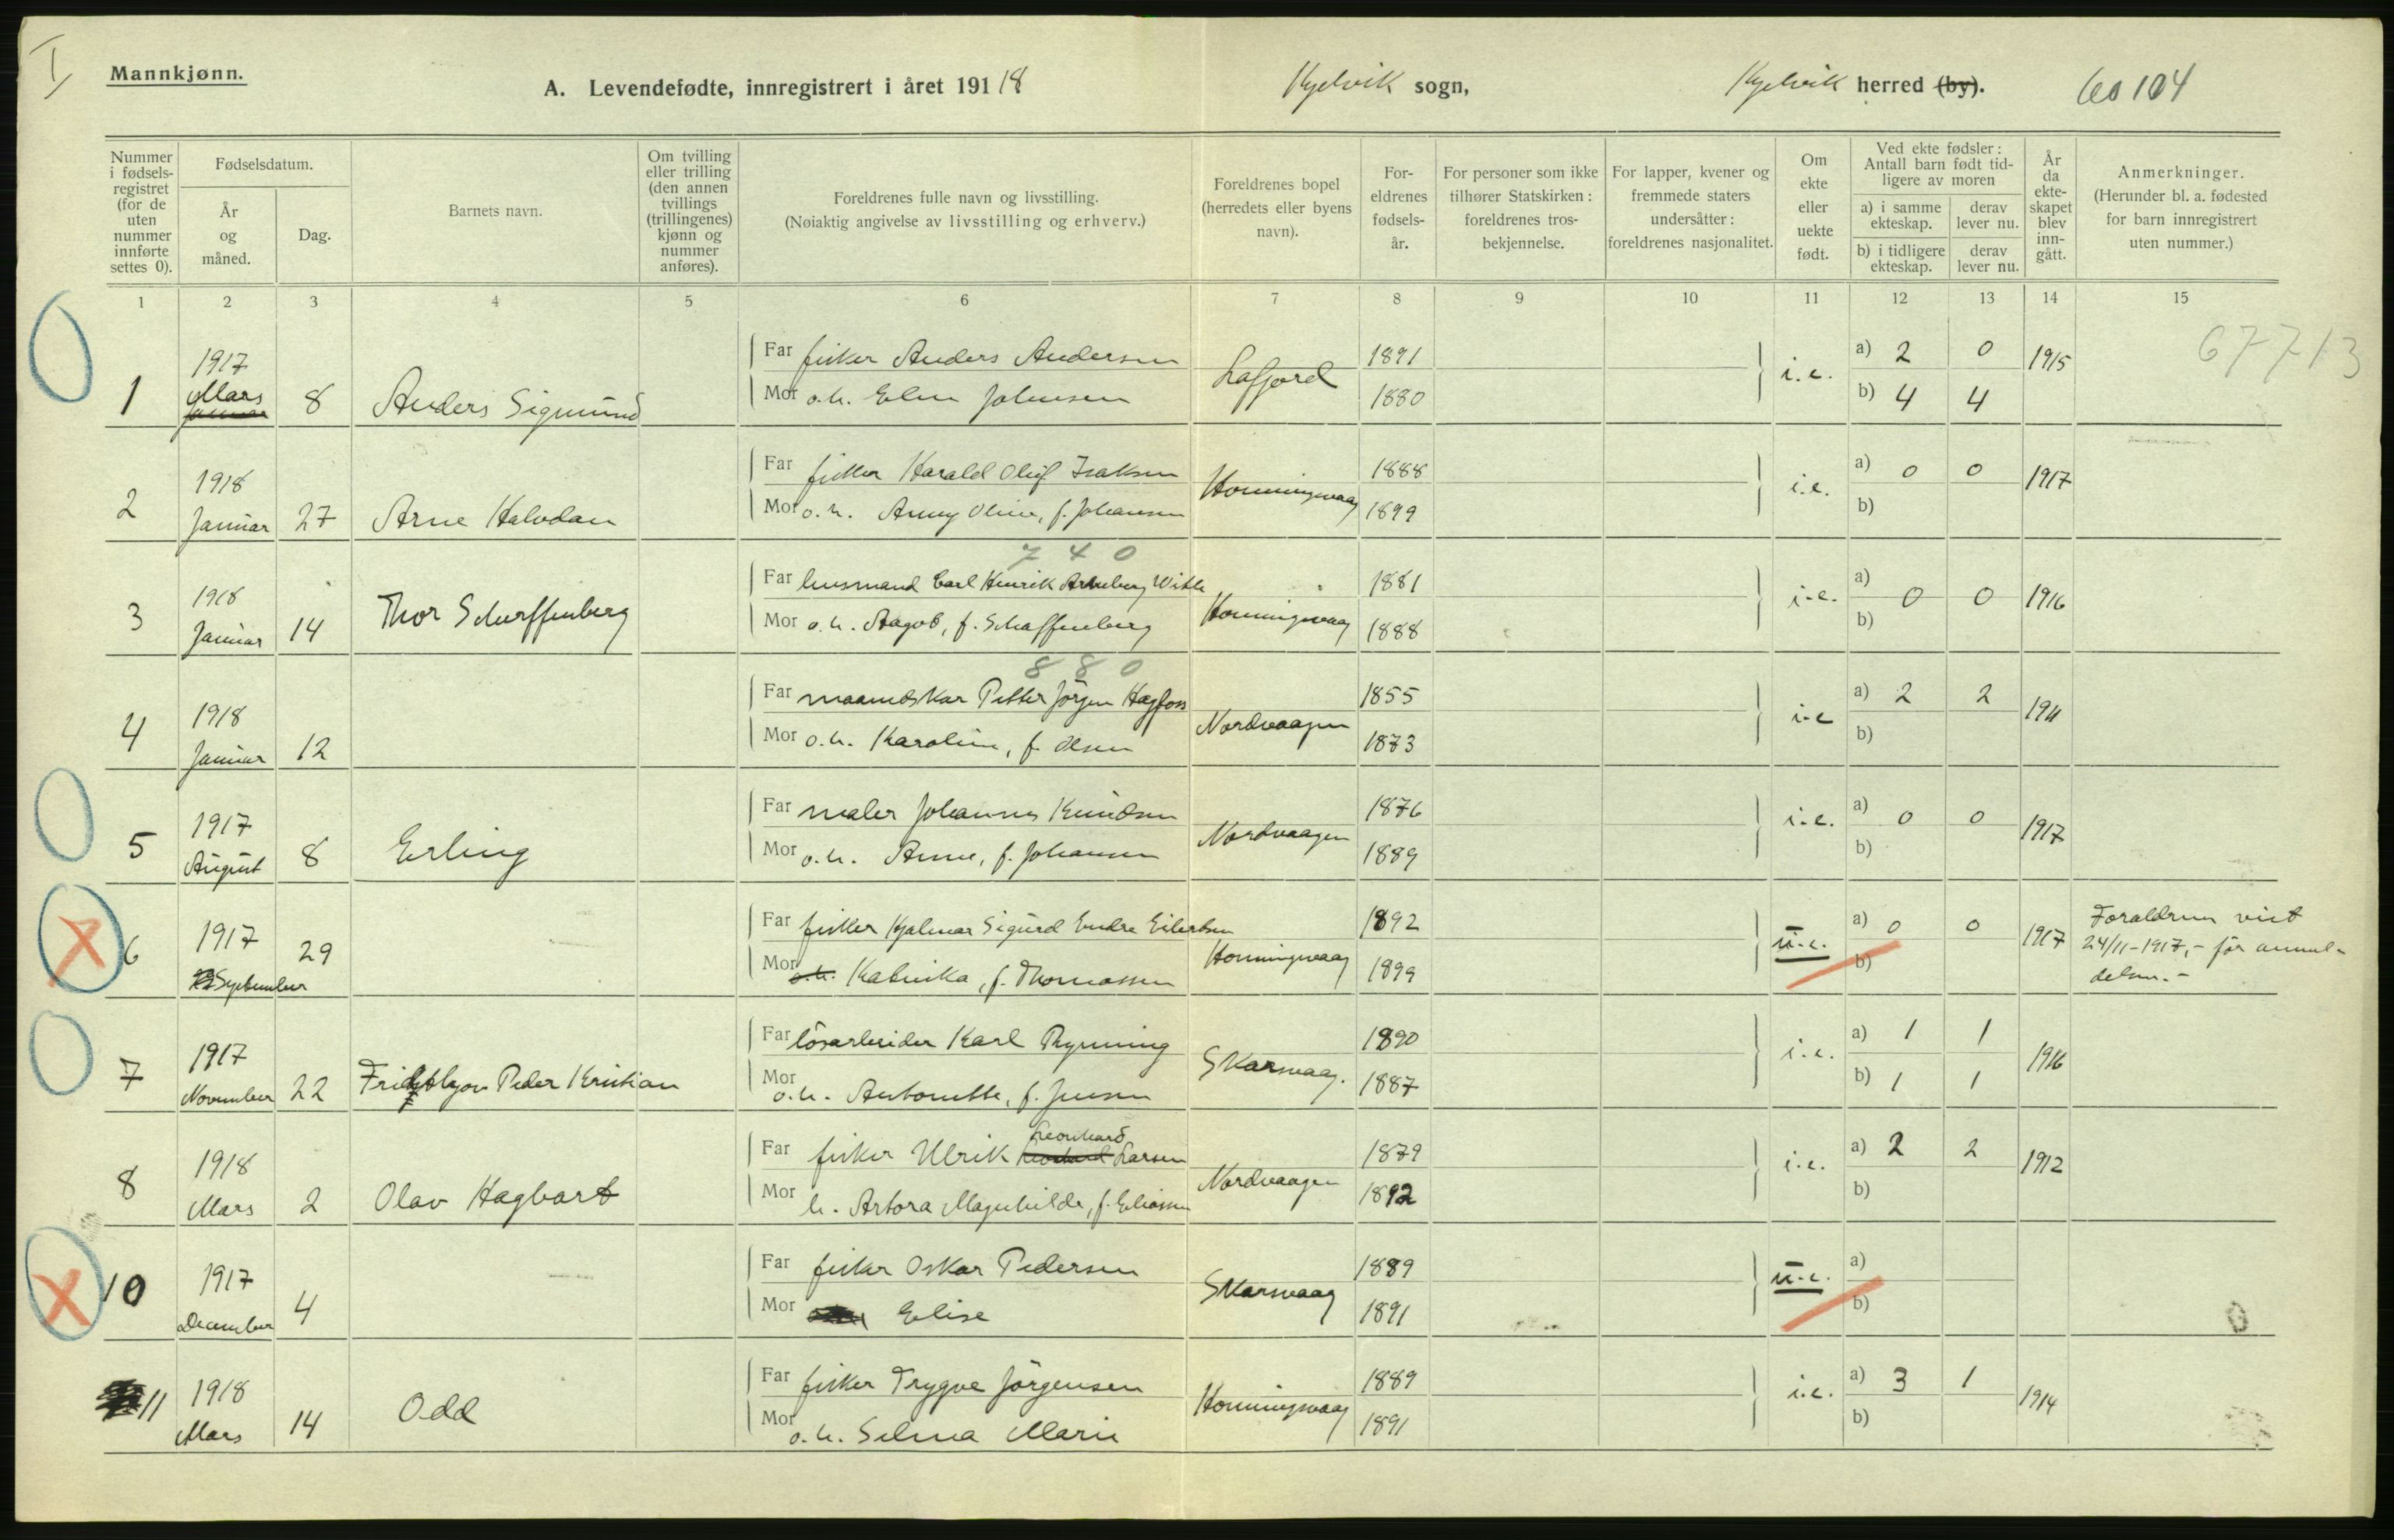 I
Mannkjønn.
A. Levendefødte, innregistrert i året 1918 Kjelvik sogn, Kjelvik herred (by). 104
Nummer i fødsels-registret (for de uten nummer innførte settes 0).
Fødselsdatum.
År og måned.
Dag.
Barnets navn.
Om tvilling eller trilling (den annen tvillings (trillingenes) kjønn og nummer anføres).
Foreldrenes fulle navn og livsstilling.
(Nøiaktig angivelse av livsstilling og erhverv.)
Foreldrenes bopel (herredets eller byens navn).
For-eldrenes fødsels-år.
For personer som ikke tilhører Statskirken: foreldrenes tros-bekjennelse.
For lapper, kvener og fremmede staters undersåtter: foreldrenes nasjonalitet.
Om ekte eller uekte født.
Ved ekte fødsler: Antall barn født tid-ligere av moren
a) i samme ekteskap.
derav lever nu.
b) i tidligere ekteskap.
derav lever nu.
År da ekte-skapet blev inn-gått.
Anmerkninger.
(Herunder bl. a. fødested for barn innregistrert uten nummer.)
1 2 3 4 5 6 7 8 9 10 11 12 13 14 15
67713
1 1917 Mars Januar 8 Anders Sigmund
Far fisker Anders Andersen Lafjord 1891 i.e. a) 2 0 1915
Mor o.h. Elen Johnsen 1880 b) 4 4
2 1918 Januar 27 Arne Halvdan
Far fisker Harald Oluf Isaksen Honningsvaag 1888 i.e. a) 0 0 1917
Mor o.h. Anny Oline, f. Johansen 1899 b)
740
3 1918 Januar 14 Thor Scharffenberg
Far lensmand Carl Henrik Wikle Honningsvaag 1881 i.e. a) 0 0 1916
Mor o.h. Aagot, f. Schaffenberg 1888 b)
880
4 1918 Januar 12
Far maanedskar Petter Jörgen Hagfoss Nordvaagen 1855 i.e a) 2 2 1911
Mor o.h. Karoline, f. Olsen 1873 b)
5 1917 August 8 Erling
Far maler Johannes Knudsen Nordvaagen 1876 i.e. a) 0 0 1917
Mor o.h. Anne, f. Johansen 1889 b)
6 1917 September 29
Far fisker Hjalmar Sigurd Endre Eilertsen Honningsvaag 1892 u.e. a) 0 0 1917 Foraldrun viet
Mor o.h. Katinka, f. Thomassen 1899 b) 24/11-1917,- før anmel-
delsen.-
7 1917 November 22 Fridthjov Peder Kristian
Far lösarbeider Karl Rynning Skarsvaag. 1890 i.e. a) 1 1 1916
Mor o.h. Antonette, f. Jensen 1887 b) 1 1
8 1918 Mars 2 Olav Hagbart
Leonhard
Far fisker Ulrik Larsen Nordvaagen 1879 i.e. a) 2 2 1912
Mor h. Artora Magnhilde, f. Eliassen 1892 b)
10 1917 December 4
Far fisker Oskar Pedersen Skarsvaag 1889 u.e. a)
Mor Elise 1891 b)
11 1918 Mars 14 Odd
Far fisker Trygve Jörgensen Honningsvaag 1889 i.e. a) 3 1 1914
Mor o.h. Selma Marie 1891 b)